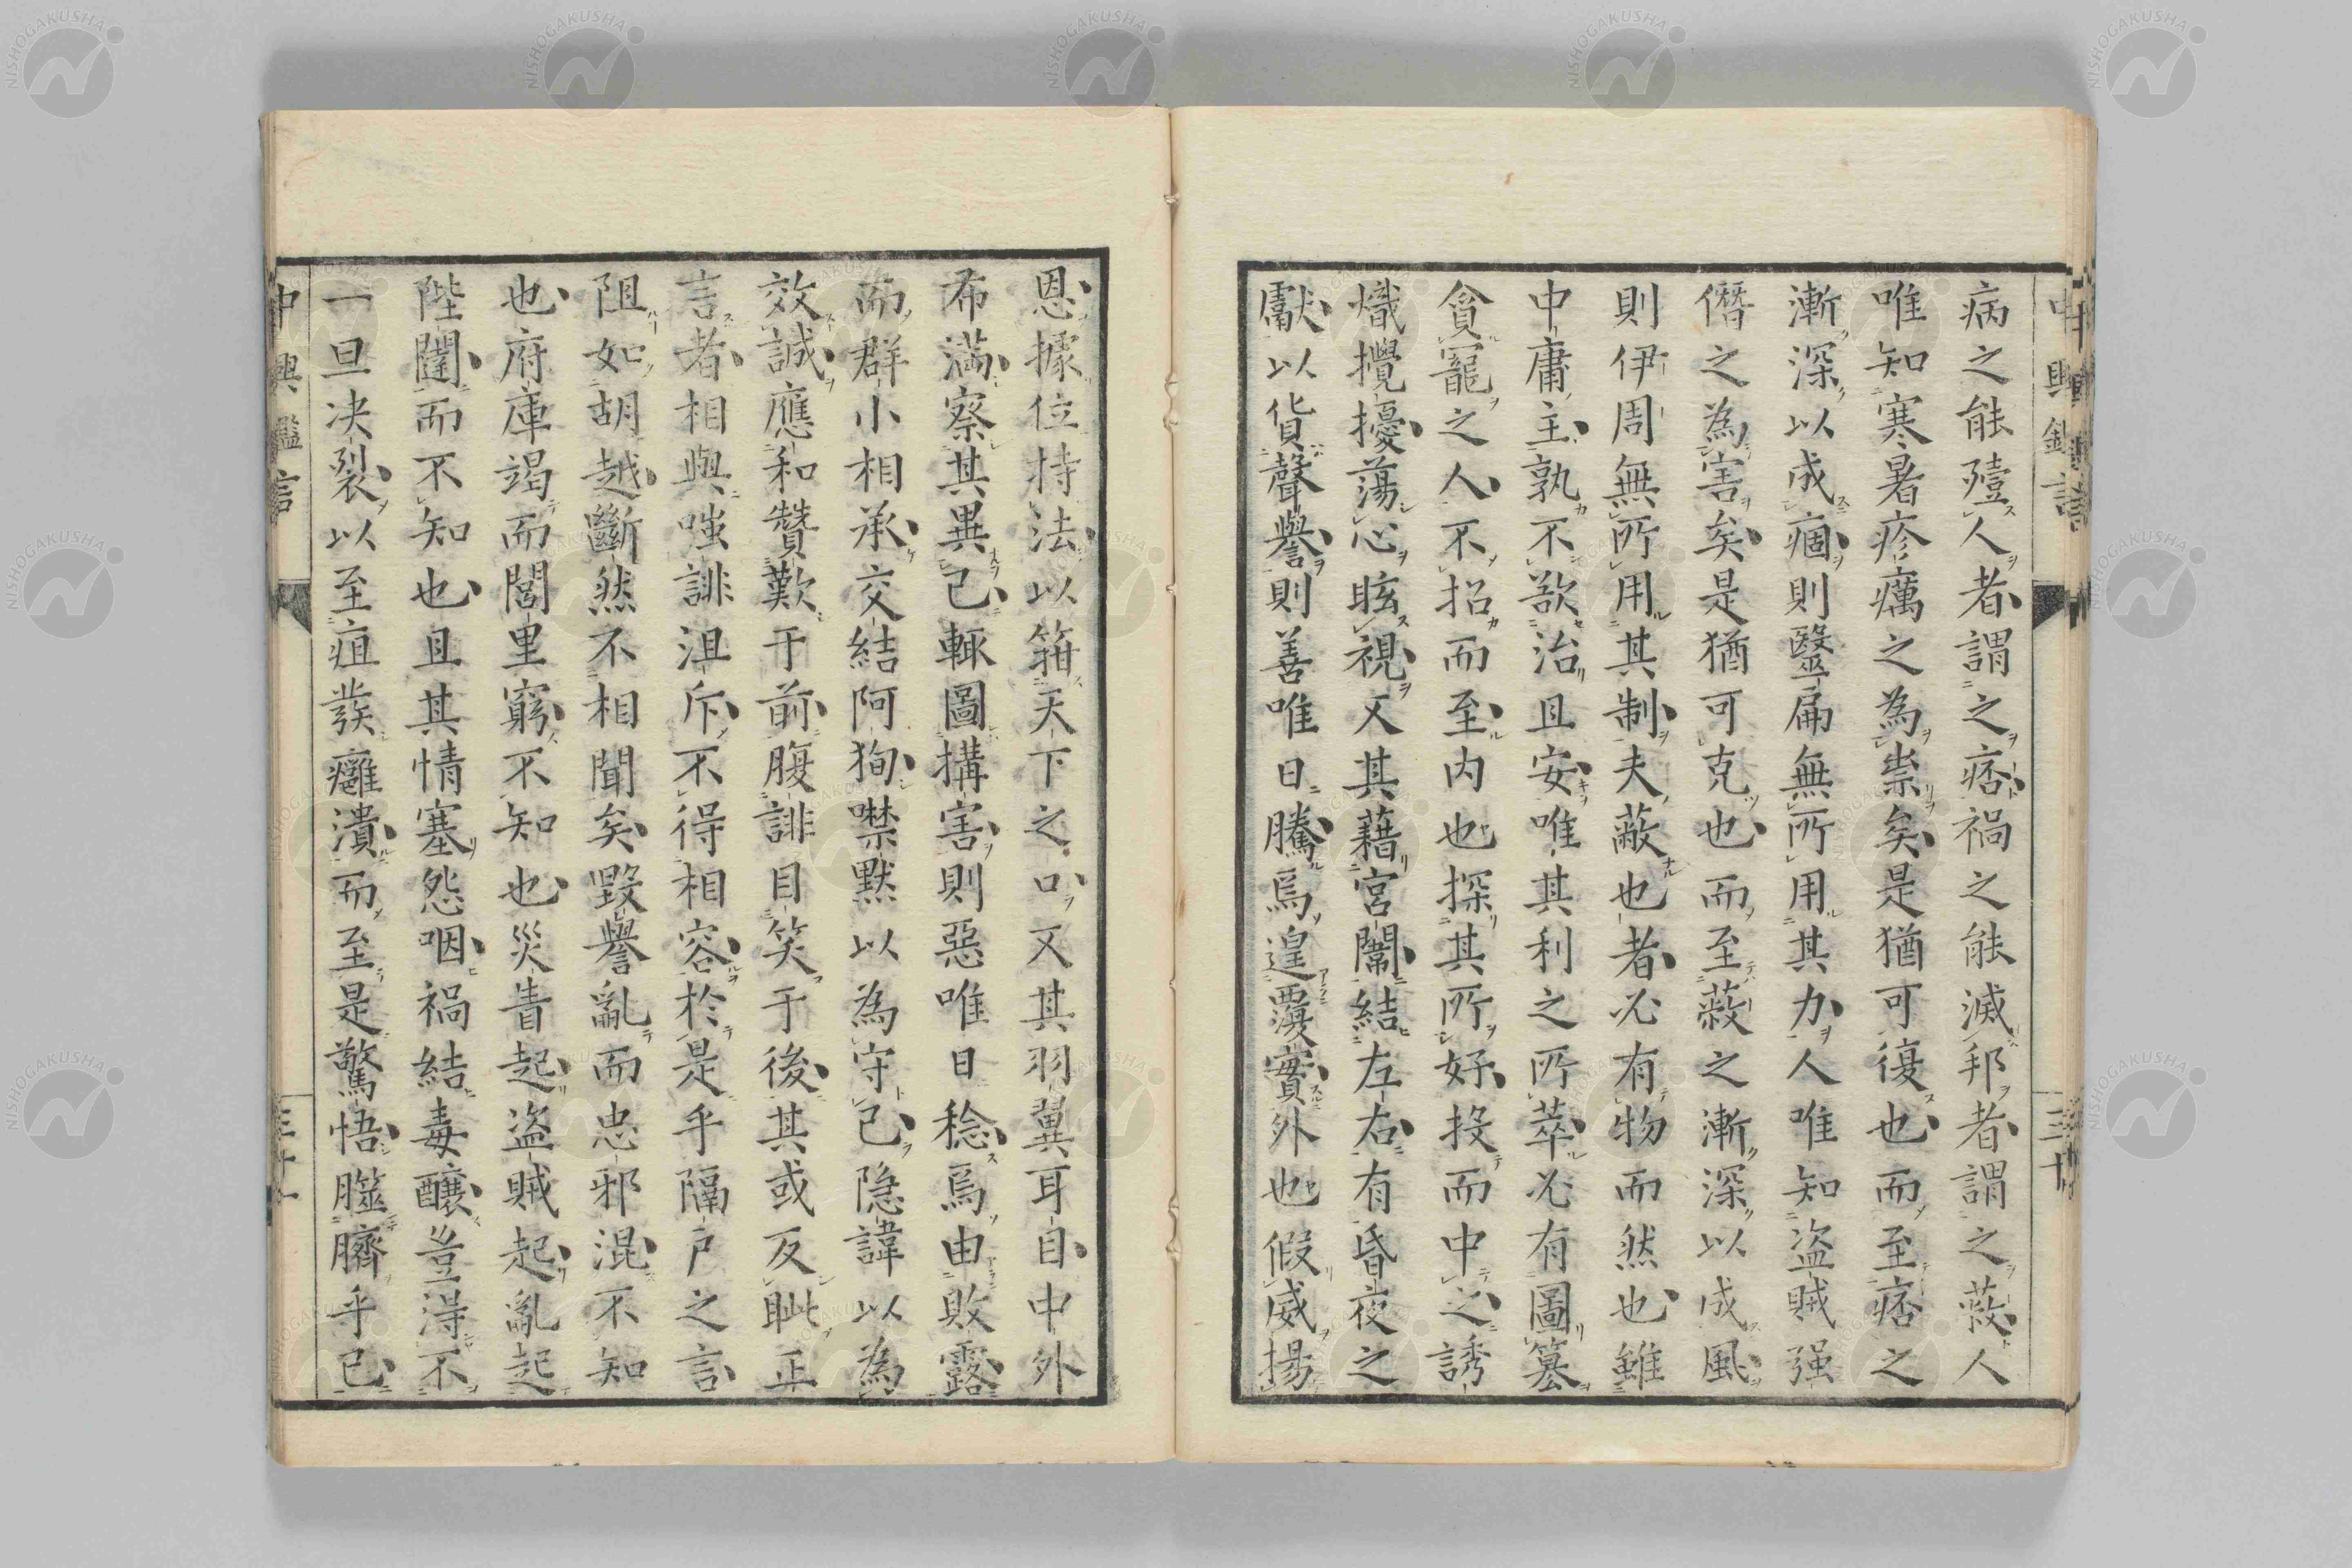 病之能殪人者謂之痞禍之能滅邦者謂之蔽人
唯知寒暑疹癘之為祟矣是猶可復也而至痞之
漸深以成痼則醫扁無所用其力人唯知盜賊强
僭之為害矣是猶可克也而至蔽之漸深以成風
則伊周無所用其制夫蔽也者必有物而然也雖
中庸主孰不欲治且安唯其利之所萃必有圖簒
貪寵之人不招而至内也探其所好投而中之誘
熾攪擾蕩心眩視又其藉宮闈結左右有昏夜之
獻以貨聲譽則善唯日騰焉遑覆實外也假威揚
恩據位持法以箝天下之口又其羽翼耳目中外
希滿察其異己輒圖搆害則惡唯日稔焉由敗露
而群小相承交結阿狥噤默以為守己隐諱以為
效誠應和贊歎于前腹誹目笑于後其或反眦正
言者相與嗤誹沮斥不得相容於是乎隔戶之言
阻如胡越斷然不相聞矣毀譽亂而忠邪混不知
也府庫竭而閭里窮不知也災眚起盜賊起亂起
陛闥而不知也且其情塞怨咽禍結毒釀豈得不
一旦决裂以至疽發癰潰而至是驚悟臍臍乎已
中興鑑言
三十
中興鑑言
三十一